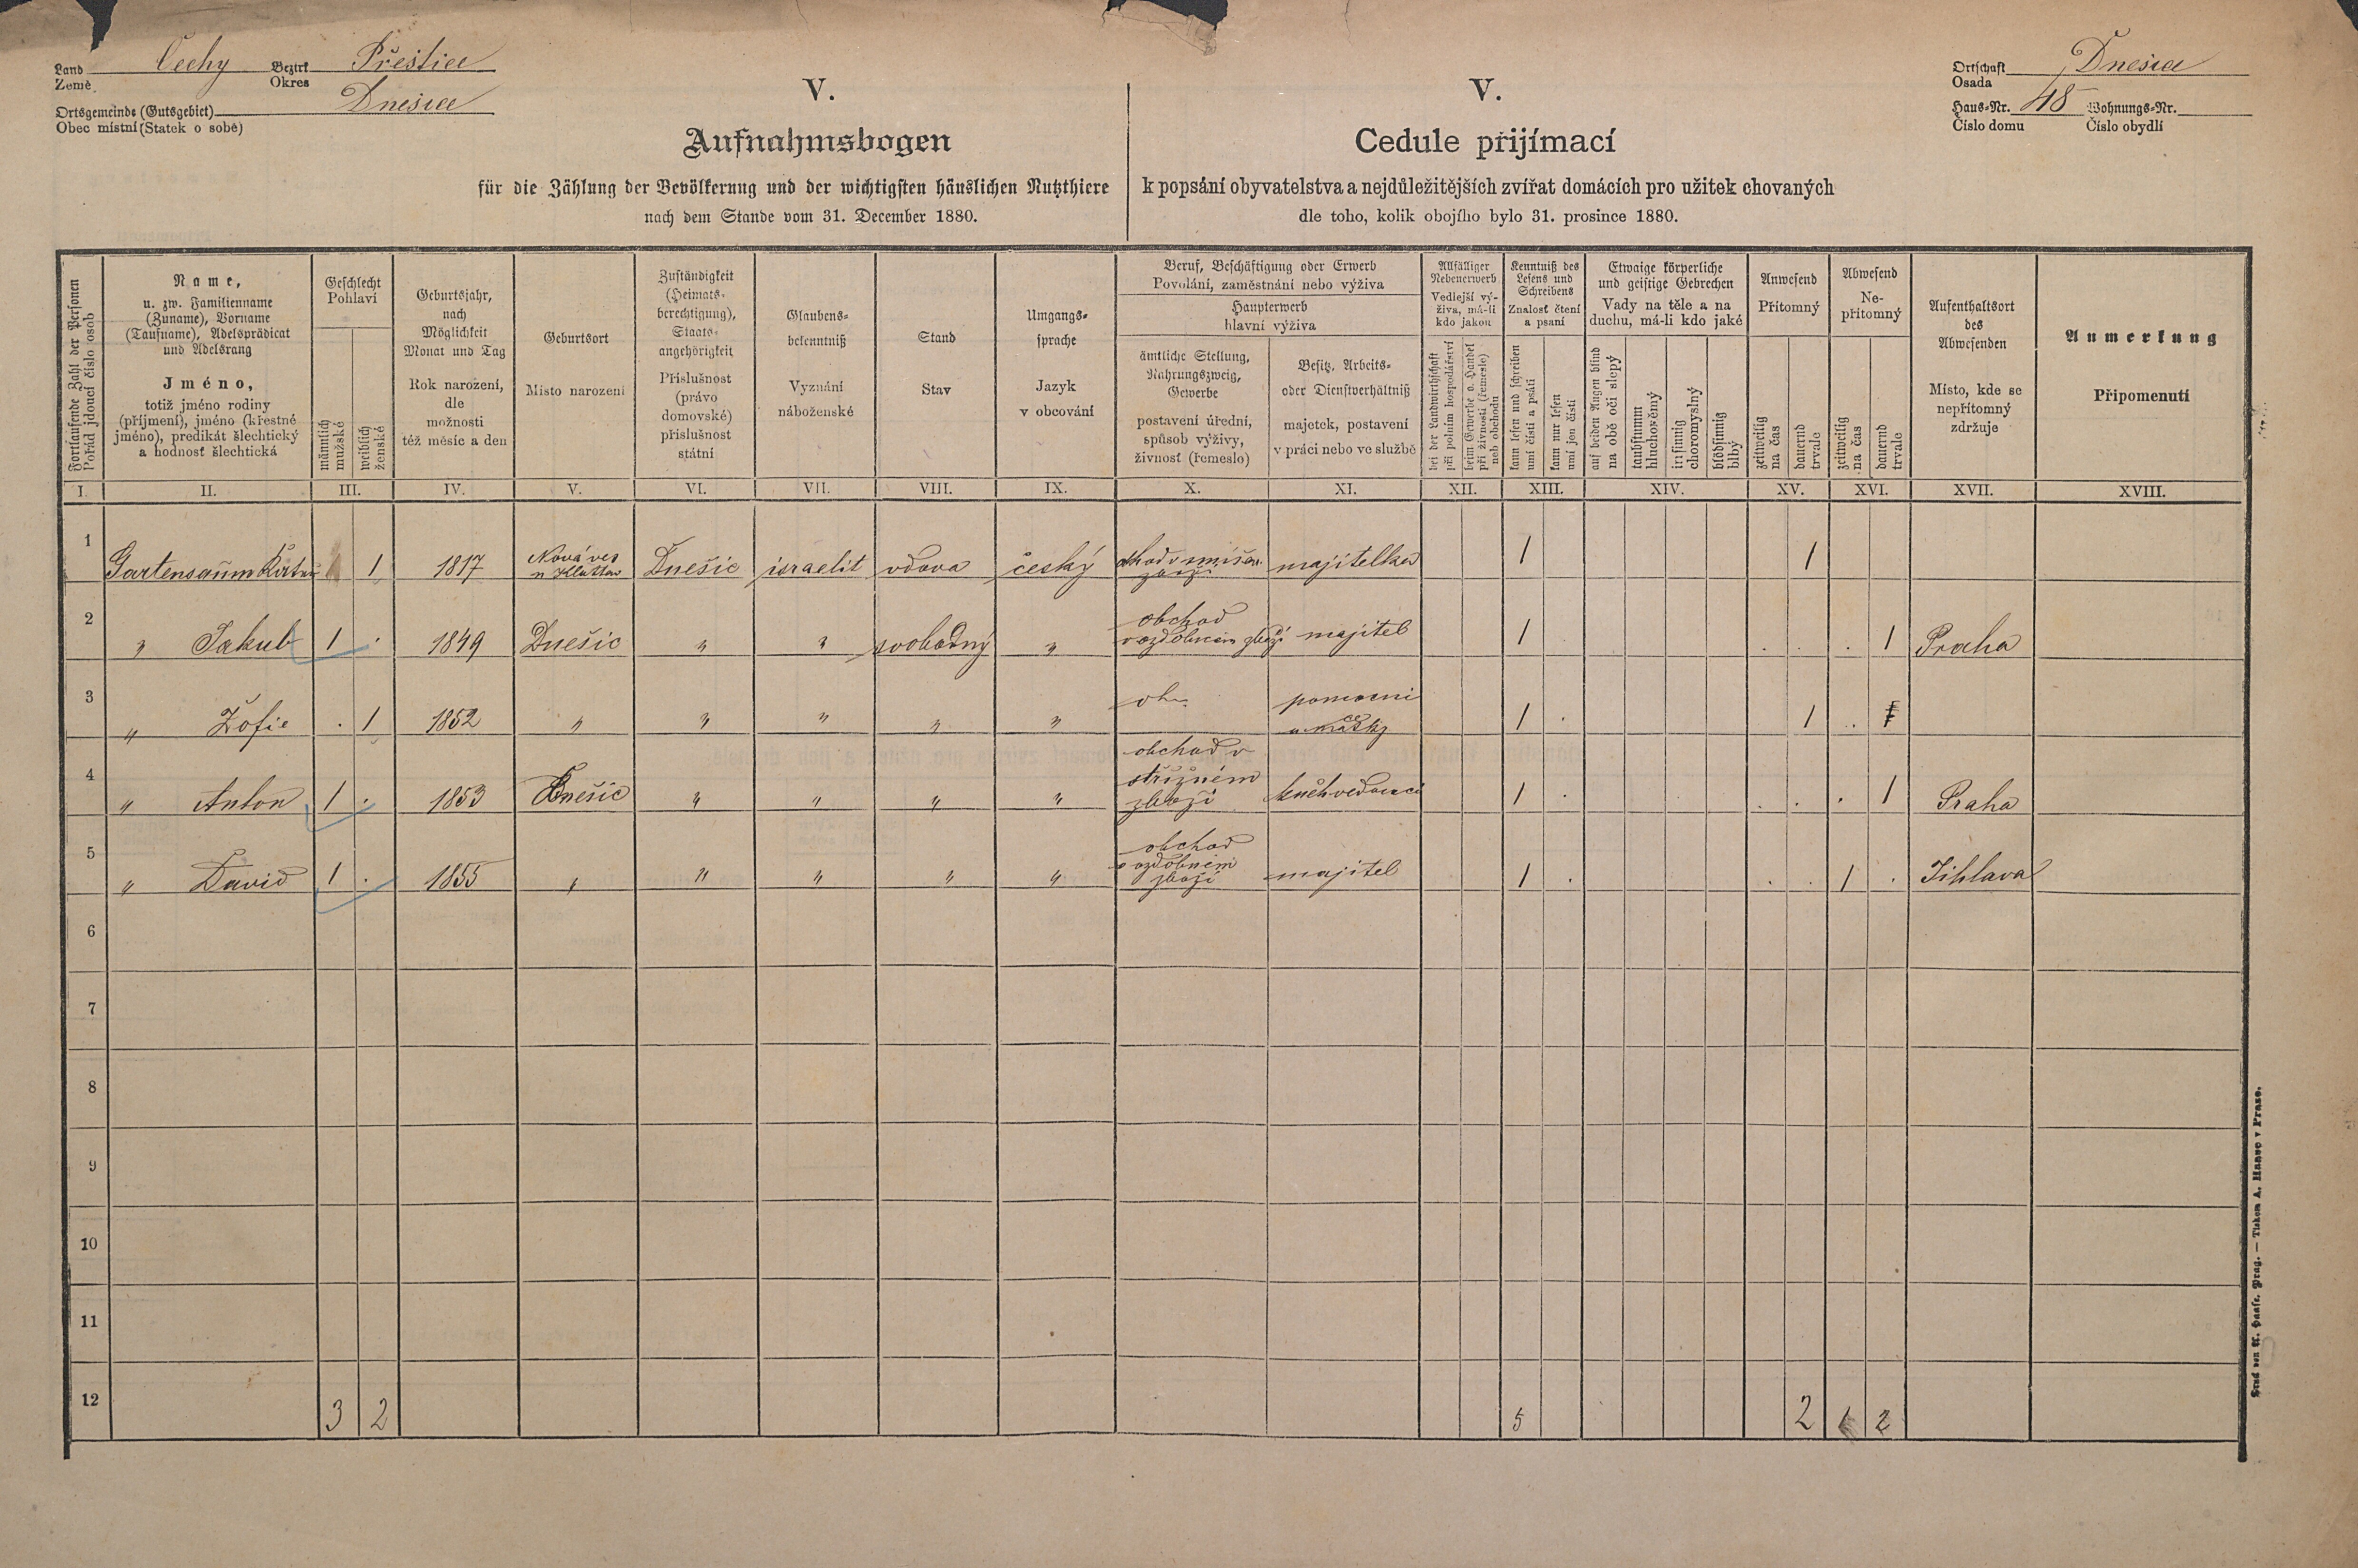 Land Čechy Bezirk Přestice
Země Okres
Ortsgemeinde (Gutsgebiet) Dnešice
Obec místní (Statek o sobě)
Ortschaft Dnešice
Osada
Haus-Nr. 48 Wohnungs-Nr.
Číslo domu Číslo obydlí
V.
Aufnahmsbogen
für die Zählung der Bevölkerung und der wichtigsten häuslichen Nutzthiere
nach dem Stande vom 31. December 1880.
V.
Cedule přijímací
k popsání obyvatelstva a nejdůležitějších zvířat domácích pro užitek chovaných
dle toho, kolik obojího bylo 31. prosince 1880.
Fortlaufende Zahl der Personen
Pořád jdoucí číslo osob
Name,
u. zw. Familienname
(Zuname), Vorname
(Taufname), Adelsprädicat
und Adelsrang
Jméno,
totiž jméno rodiny
(příjmení), jméno (křestné
jméno), predikát šlechtický
a hodnosť šlechtická
Geschlecht
Pohlaví
männlich
mužské
weiblich
ženské
Geburtsjahr,
nach
Möglichkeit
Monat und Tag
Rok narození,
dle
možnosti
též měsíc a den
Geburtsort
Místo narození
Zuständigkeit
(Heimats-
berechtigung),
Staats-
angehörigkeit
Příslušnost
(právo
domovské)
příslušnost
státní
Glaubens-
bekenntniß
Vyznání
náboženské
Stand
Stav
Umgangs-
sprache
Jazyk
v obcování
Beruf, Beschäftigung oder Erwerb
Povolání, zaměstnání nebo výživa
Haupterwerb
hlavní výživa
ämtliche Stellung,
Nahrungszweig,
Gewerbe
postavení úřední,
spůsob výživy,
živnosť (řemeslo)
Besitz, Arbeits-
oder Dienstverhältniß
majetek, postavení
v práci nebo ve službě
Allfälliger
Nebenerwerb
Vedlejší vý-
živa, má-li
kdo jakou
bei der Landwirthschaft
při polním hospodářství
beim Gewerbe o. Handel
při živnosti (řemesle)
neb obchodu
Kenntniß des
Lesens und
Schreibens
Znalosť čtení
a psaní
kann lesen und schreiben
umí čísti a psáti
kann nur lesen
umí jen čísti
Etwaige körperliche
und geistige Gebrechen
Vady na těle a na
duchu, má-li kdo jaké
auf beiden Augen blind
na obě oči slepý
taubstumm
hluchoněmý
irrsinnig
choromyslný
blödsinnig
blbý
Anwesend
Přítomný
zeitweilig
na čas
dauernd
trvale
Abwesend
Ne-
přítomný
zeitweilig
na čas
dauernd
trvale
Aufenthaltsort
des
Abwesenden
Místo, kde se
nepřítomný
zdržuje
Anmerkung
Připomenutí
I. II. III. IV. V. VI. VII. VIII. IX. X. XI. XII. XIII. XIV. XV. XVI. XVII. XVIII.
1 1 1817 Nová ves Dnešic israelit vdova český majitelka 1 1
obchod
2 " Jakub 1 . 1849 Dnešic " " svobodný " v ozdobném zboží majitel 1 . . . 1 Praha
3 " Žofie . 1 1852 " " " " " 1 . 1 .
obchod v
střižném
4 " Anton 1 . 1853 Dnešic " " " " zboží 1 . . . . 1 Praha
obchod
v ozdobném
5 " David 1 . 1855 " " " " " zboží majitel 1 . . . 1 . Jihlava
6
7
8
9
10
11
12 3 2 5 2 1 2
Druck von A. Haase, Prag. — Tiskem A. Haase v Praze.